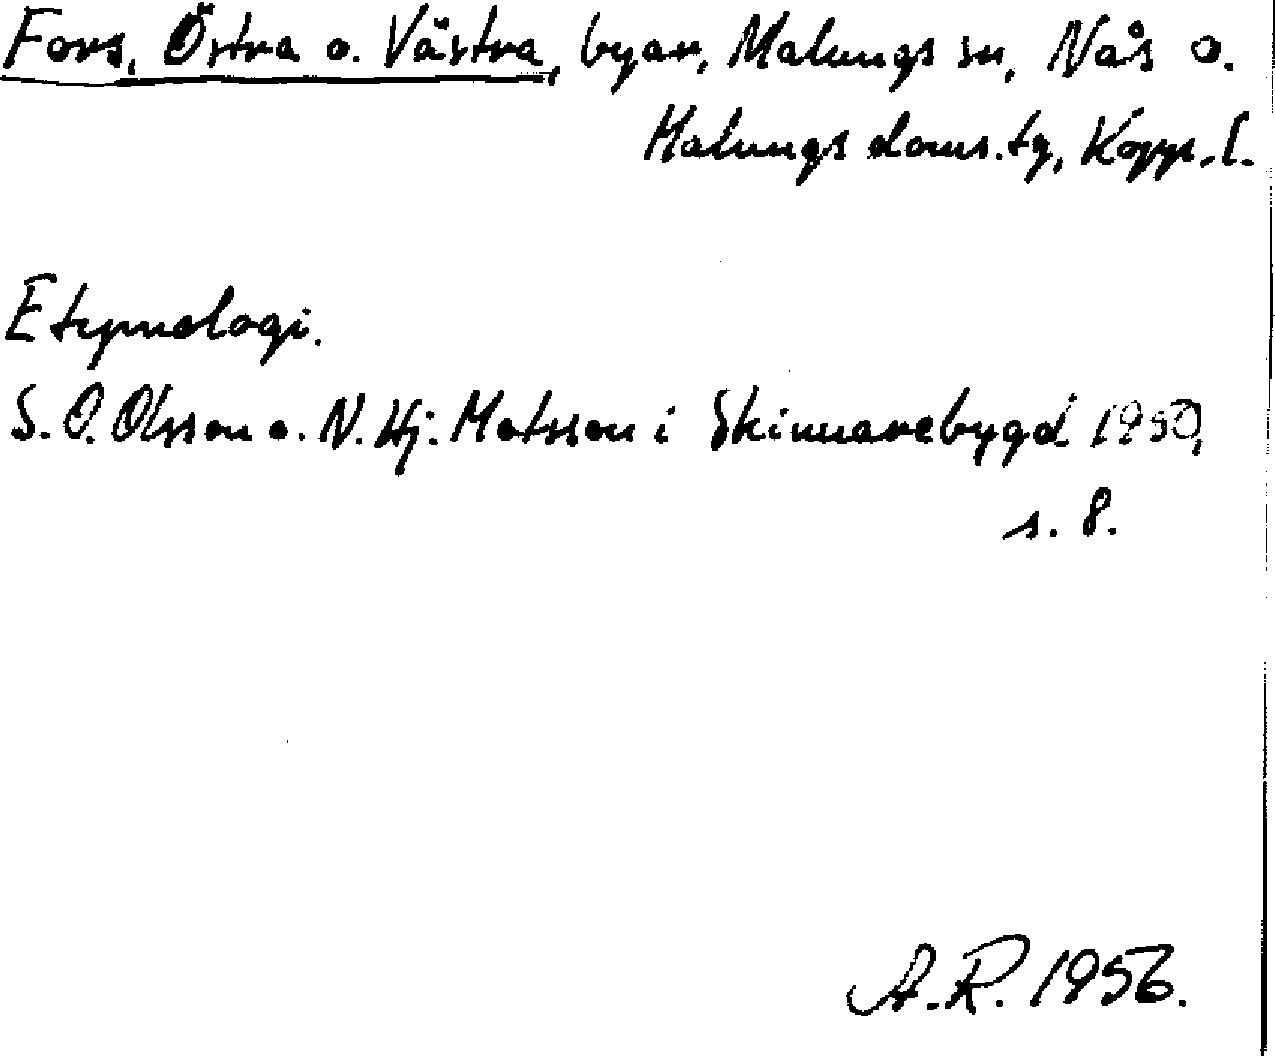 Fors, Östra o. Västra, byar, Malungs sn, Nås o.
Malungs doms.tg, Kopp.l.
Etymologi.
S. O. Olsson o. N. Hj. Matsson i Skinnarebygd 1950,
s. 8.
A.R. 1956.